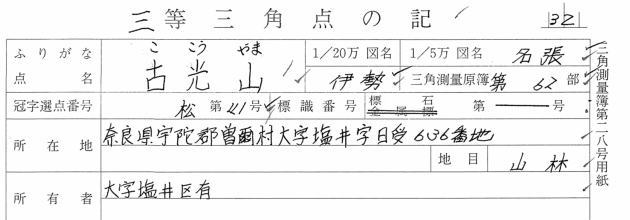 三等三角点の記
32
ふりがな ここうやま 1/20万 図名 1/5万 図名 名張
点名 古光山 伊勢 三角測量原簿第 62 部
冠字選点番号 松 第41号 標識番号 標石 金属標 第 ― 号
所在地 奈良県宇陀郡曽爾村大字塩井字日受636番地
地目 山林
所有者 大字塩井区有
三角測量簿第二八号用紙